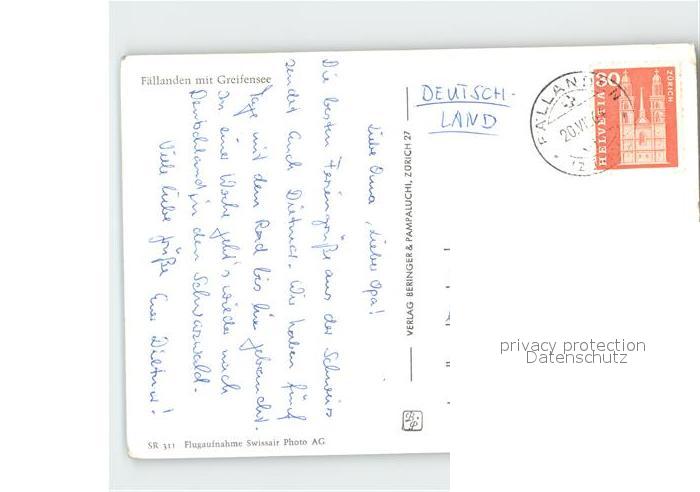 Fällanden mit Greifensee
Liebe Oma, lieber Opa!
Die besten Feriengrüße aus der Schweiz
sendet Euch Dietmar. Wir haben fünf
Tage mit dem Rad bis hier gebraucht.
In einer Woche geht's wieder nach
Deutschland in den Schwarzwald.
Viele liebe Grüße Euer Dietmar!
SR 311 Flugaufnahme Swissair Photo AG
VERLAG BERINGER & PAMPALUCHI, ZÜRICH 27
B.P
DEUTSCH-
LAND
FÄLLANDEN
20.VII
HELVETIA
ZÜRICH
privacy protection
Datenschutz